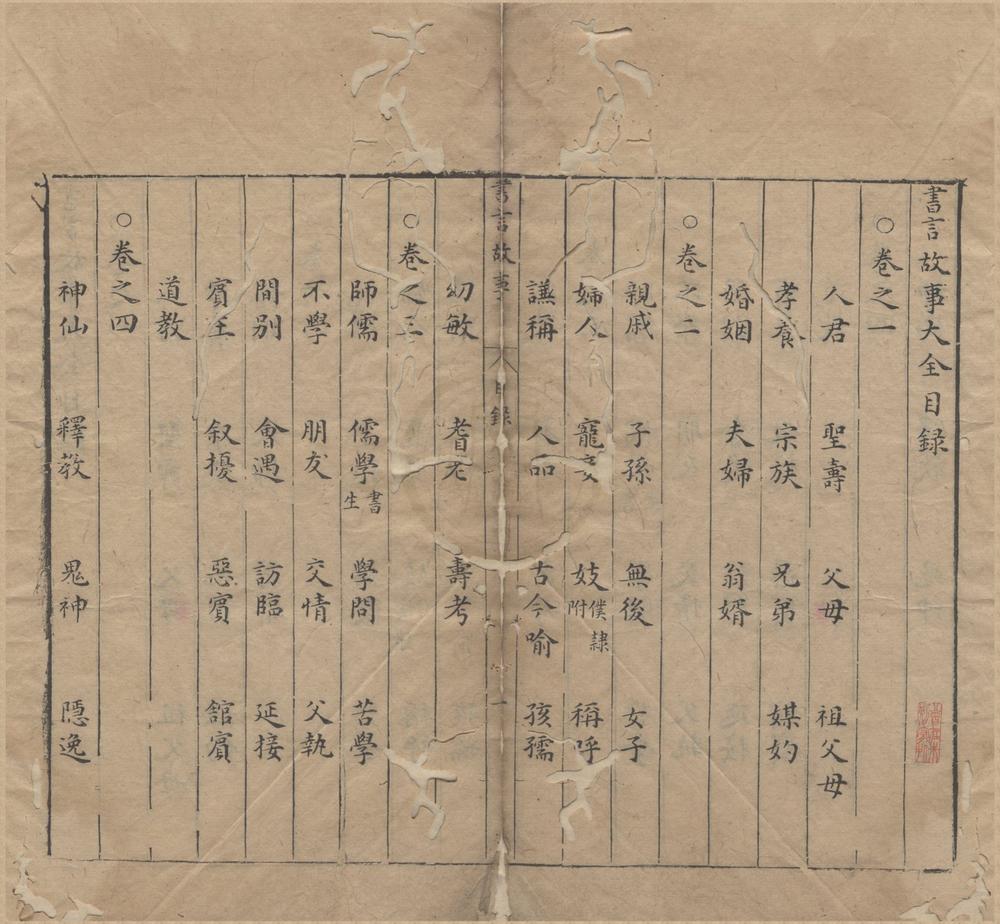 書言故事大全目録
○卷之一
人君 聖壽 父母 祖父母
孝養 宗族 兄弟 媒妁
婚姻 夫婦 翁婿
○卷之二
親戚 子孫 無後 女子
婦人 寵妾 妓僕隷附 稱呼
謙稱 人品 古今喻 孩孺
書言故事 目録 一
幼敏 耆老 壽考
○卷之三
師儒 儒學書生 學問 苦學
不學 朋友 交情 父執
間别 會遇 訪臨 延接
賓主 叙擾 惡賓 舘賓
道教
○卷之四
神仙 釋教 鬼神 隱逸